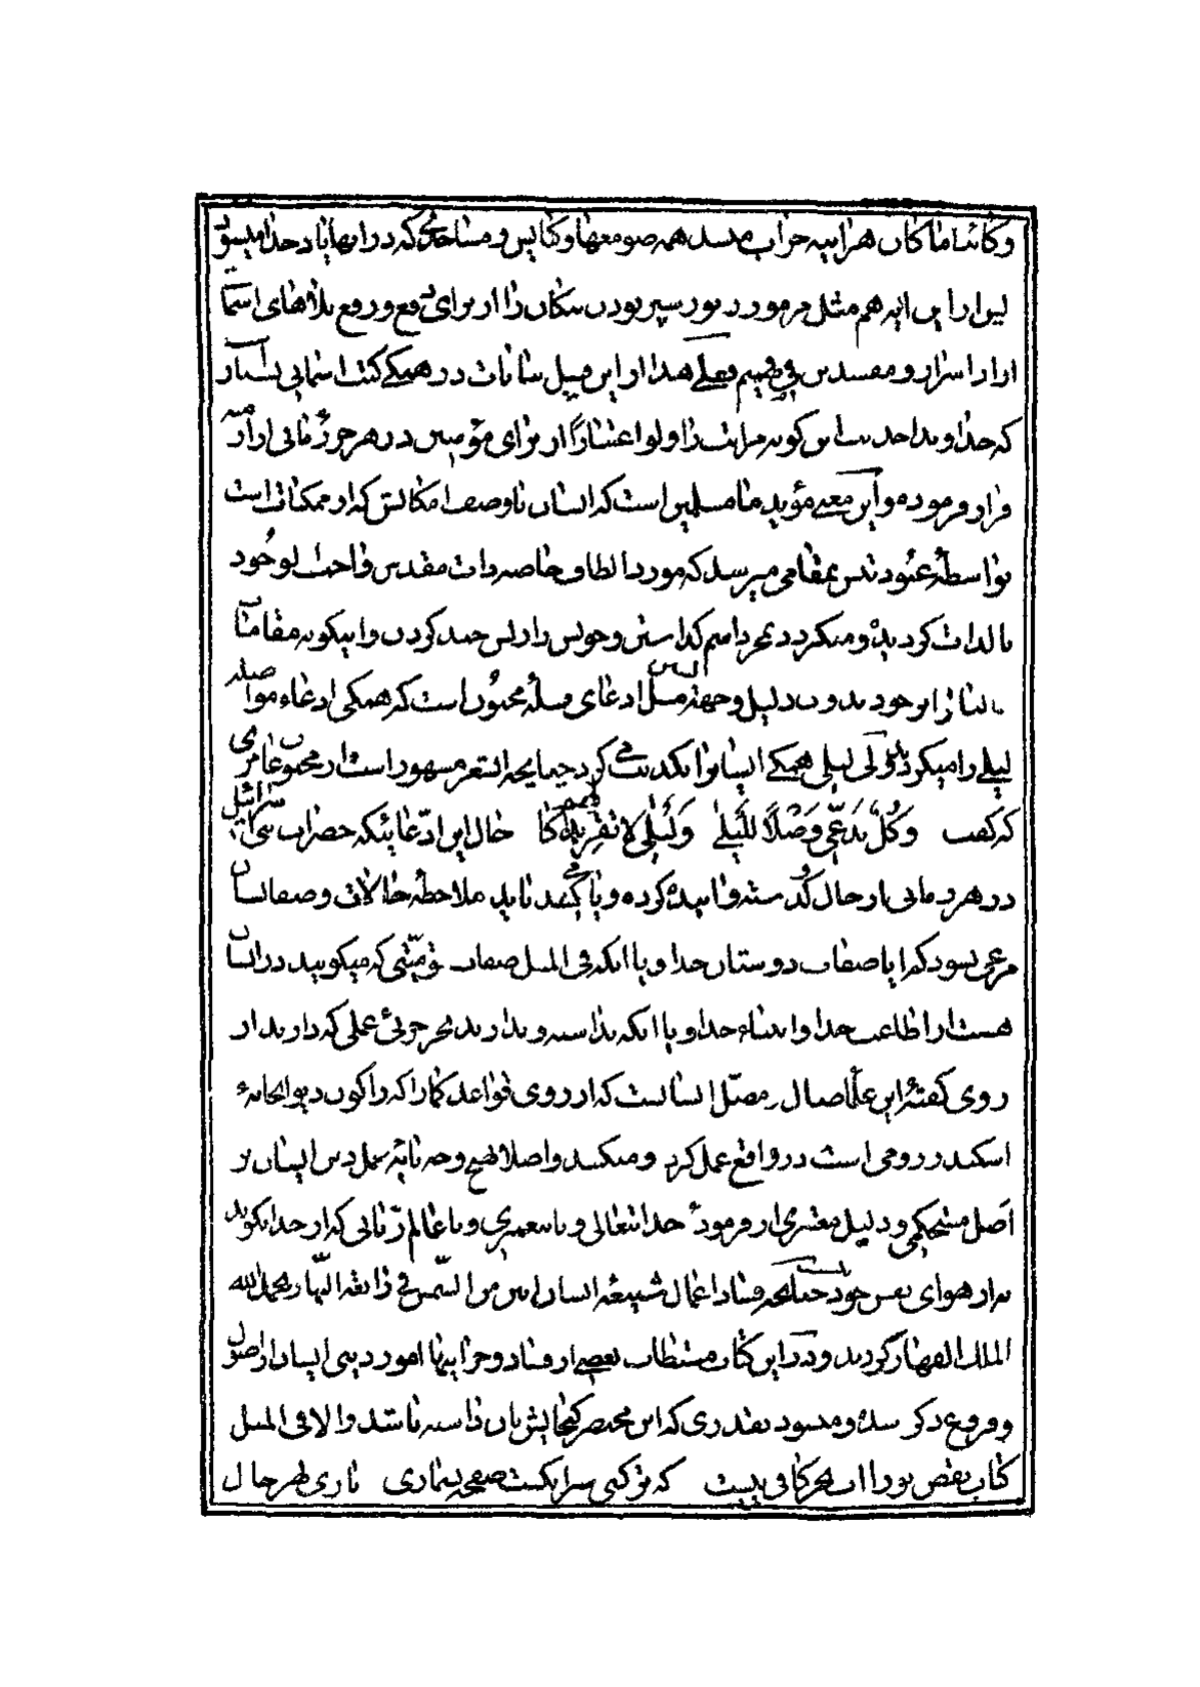 و کائنا ما کان هرآینه خراب میشد همه صومعها و کنایس و مساجدی که در آنها یاد خدا میشود
لیزا را این آیه هم مثل مرموز زبور سپر بودن نیکان را از برای دفع و رفع بلاهای آسما
از اشرار و مفسدین می فهیم فعلی هذا از این قبیل بیانات در همکی کتب آسمانی بسیار
که خداوند احدیت این کونه مراتب را ولو اعتبارًا از برای مؤمنین در هر جزء زمانی از ازمنه
قرار فرموده و این معنی مؤید ما مسلمین است که انسان با وصف امکانش که از ممکنات است
بواسطهٔ عبودیتش بمقامی میرسد که مورد الطاف خاصه ذات مقدس واجب الوجود
بالذات کردیده و میکردد بمجرد اسم کذاشتن و خویش را ریش خند کردن و اینکونه مقامات
عالیه را بر خود بدون دلیل و جهة مثل ادعای قبیلهٔ مجنون است که همکی ادعاء مواصله
لیلی را میکردند ولی لیلی همکی ایشانرا تکذیب می کرد چنانچه این شعر مشهور است از مجنون عامری
که کفت وَکُلٌّ یَدَّعِی وَصْلًا لِلَیْلی وَ لَیْلی لا تُقِرُّ لَهُمْ بِذاکا حال این ادعائیکه حضرات بنی اسرائیل
در هر زمانی از حال کذشته و آینده کرده و یا می کنند باید ملاحظهٔ حالات و صفات ایشان
مرعی بشود که آیا صفات دوستان خدا و یا آنکه فی المثل صفات قومیتی که میکویند در ایشان
هست از اطاعت خدا و انبیاء خدا و یا آنکه نداشته و ندارند بهر جزئی عملی که دارند از
روی کفتهٔ این علما ضال و مضل ایشانست که از روی قواعد کمارا که تا کنون دیوانخانهٔ
اسکندر رومی است در واقع عمل کرده و میکنند و اصلا بهیچ وجه بنای عمل دین ایشان بر
اصل مستحکمی و دلیل معتبری از فرمودهٔ خدایتعالی و یا پیغمبری و یا عالم ربانی که از خدا بکوید
نه از هوای نفس خود نیست چنانچه فساد اعمال شنیعه ایشان ابین من الشمس فی رابعة النهار بحمدالله
الملک القهار کردیده و در این کتاب مستطاب بعضی از فساد و خرابیها امور دینی ایشان از اصول
و فروع ذکر شده و میشود بقدری که این مختصر کنجایش بآن داشته باشد والا فی المثل
کتاب نقض تو را آب بحر کافی نیست که تر کنی سر انکشت صفحه بشماری باری بهر حال